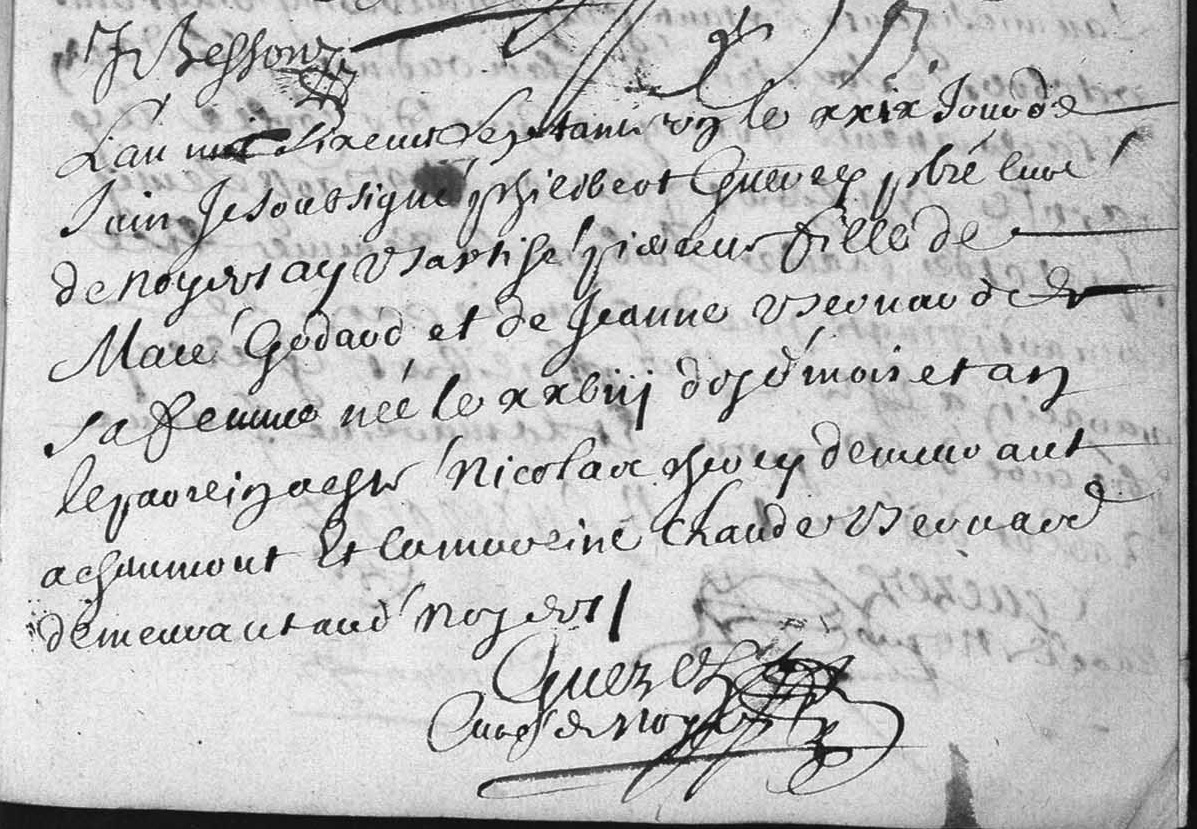 J Besson
L'an mil sixcent septante un le xxix Jour de
Juin Je soubsigné philebert Guerey pbre curé
de noyers ay Baptisé fille de
Macé Godard et de Jeanne Bernarde
sa femme née le xxbiij dud mois et an
le parein a esté Nicolas demeurant
a chaumont Et la mareine Claude Bernard
demeurant aud Noyers
Guerey
Curé de Noyers